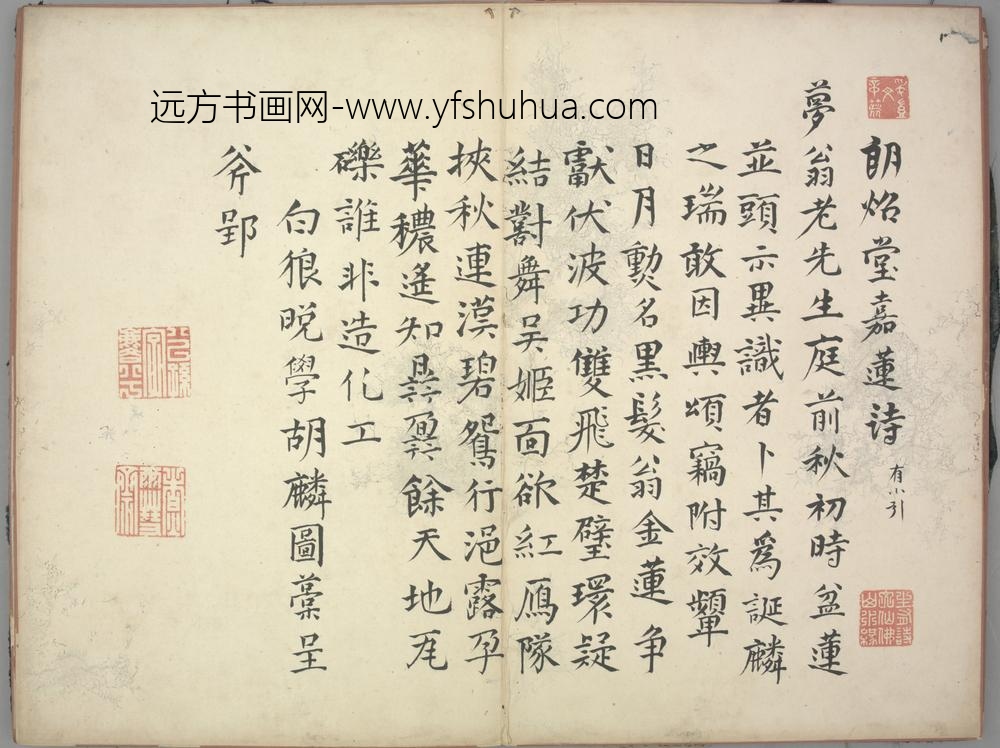 远方书画网-www.yfshuhua.com
朗炤堂嘉蓮詩 有小引
夢翁老先生庭前秋初時盆蓮
並頭示異識者卜其為誕麟
之瑞敢因輿頌竊附效顰
日月勳名黑髮翁金蓮爭
獻伏波功雙飛楚璧環疑
結對舞吳姬面欲紅鴈隊
挾秋連漠碧鴛行浥露孕
華穠遙知餘天地瓦
礫誰非造化工
白狼晚學胡麟圖藁呈
斧郢